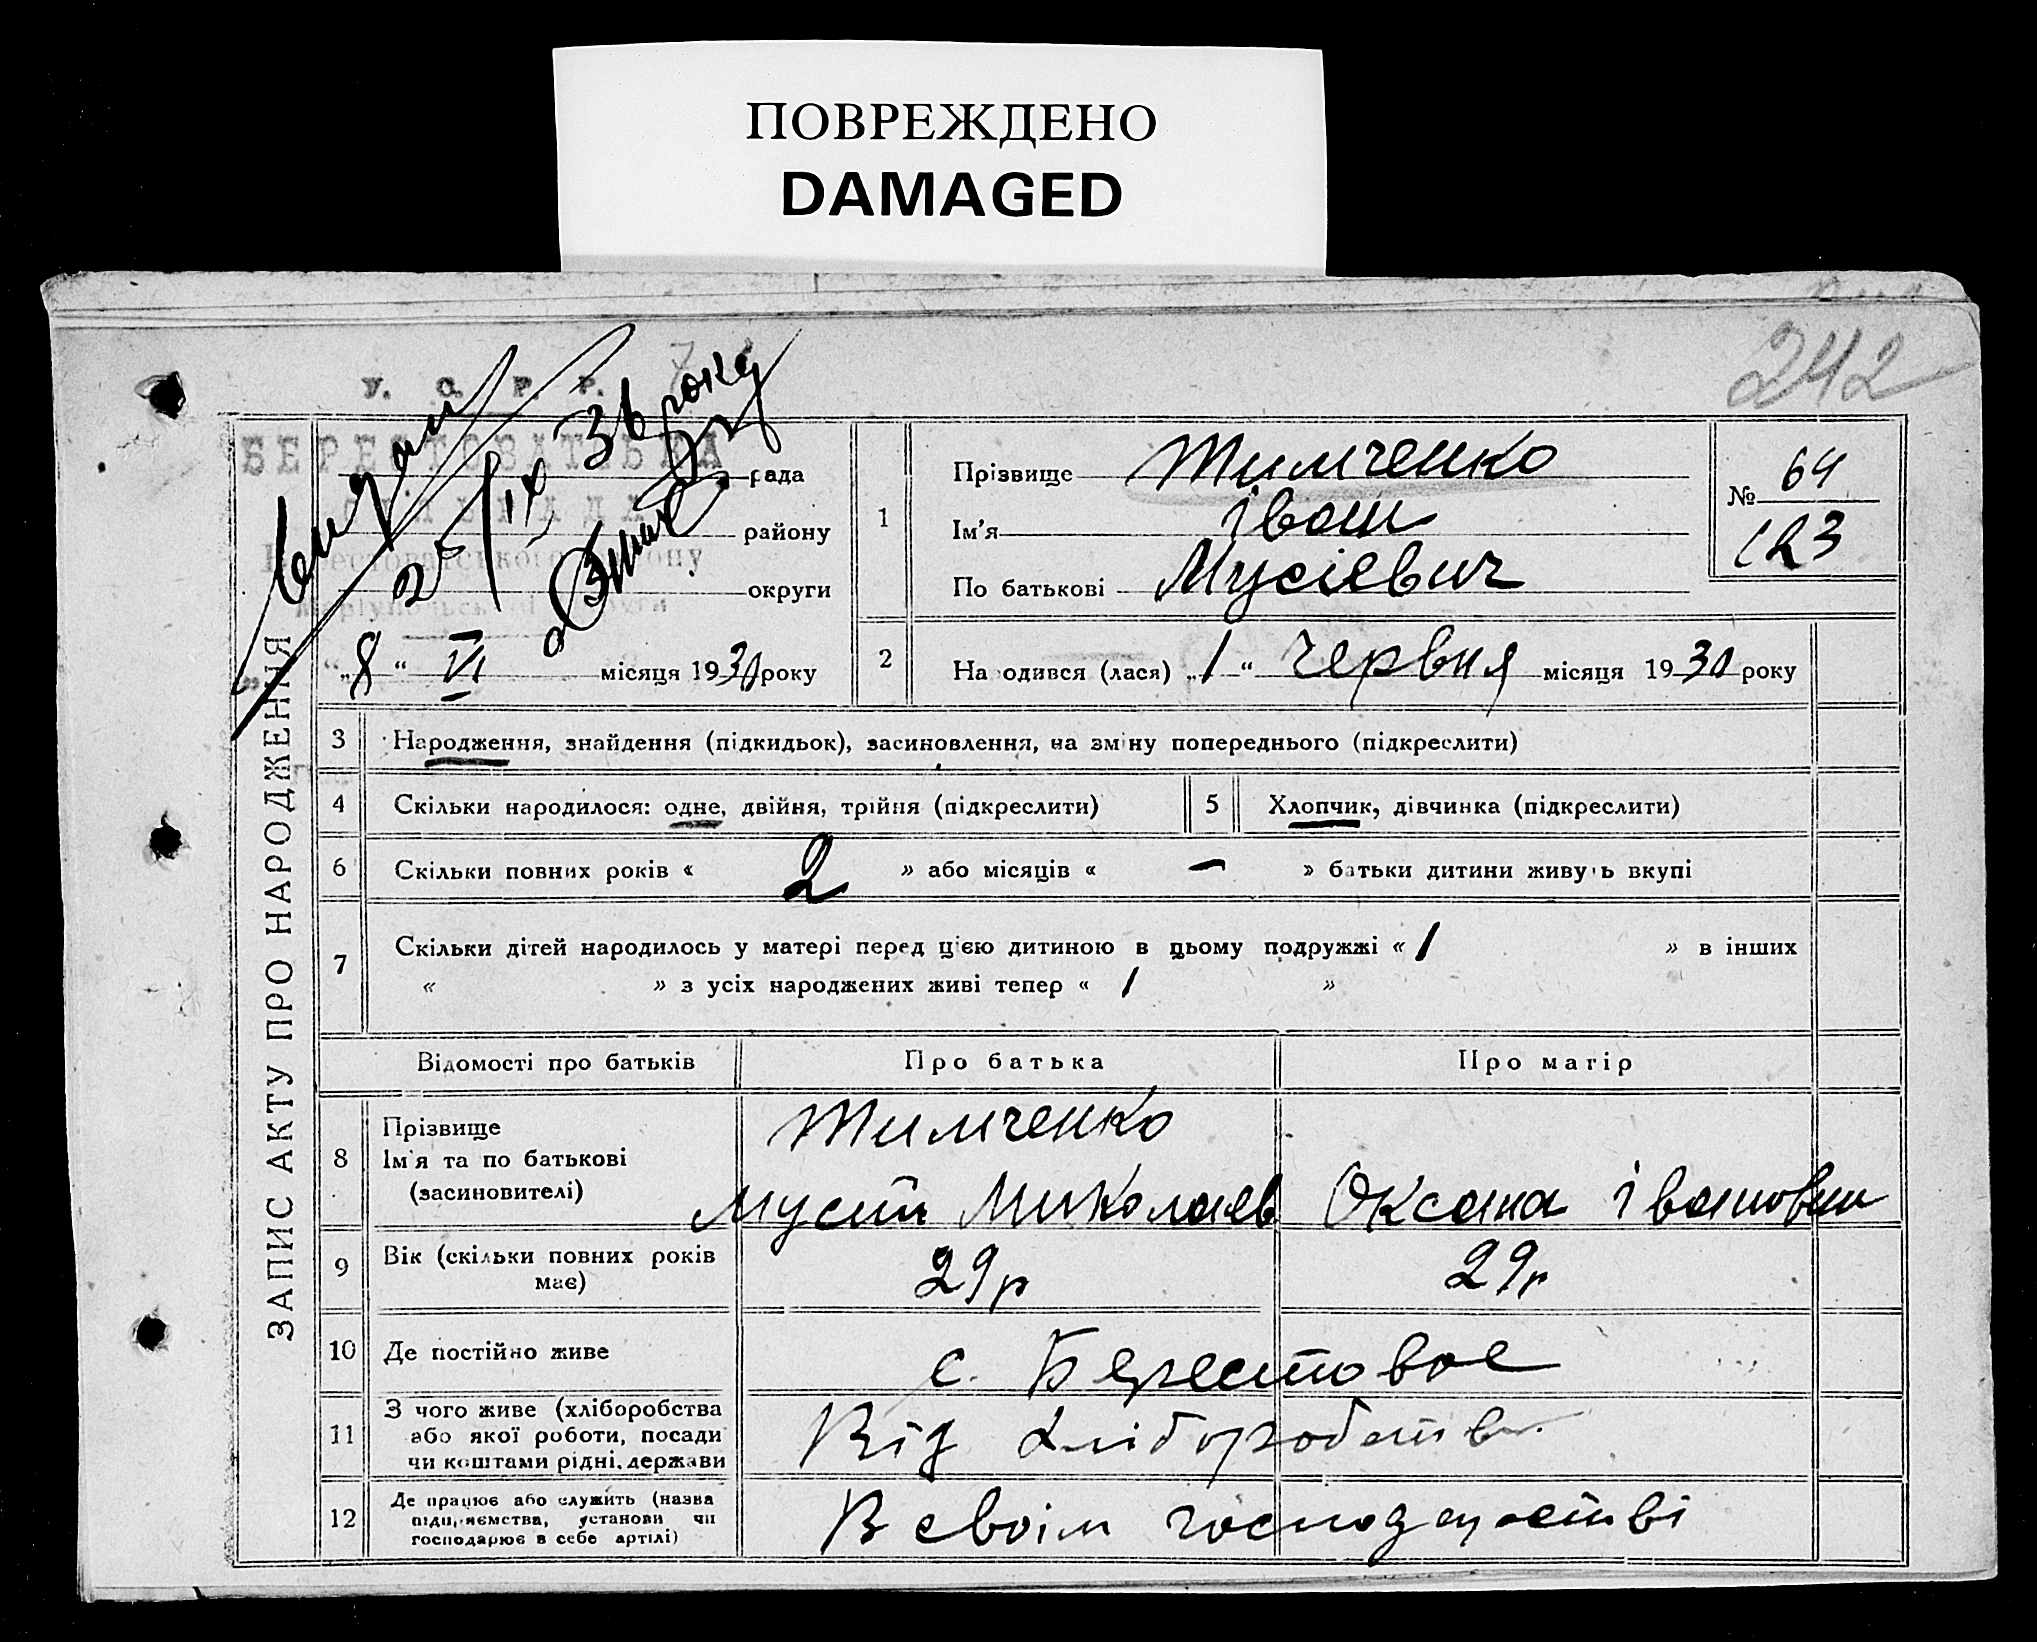 ПОВРЕЖДЕНО
DAMAGED
242
У. С. Р. Р.
БЕРЕСТОВАТСЬКА
рада
району
округи
36 року
„8“ VI місяця 1930 року
ЗАПИС АКТУ ПРО НАРОДЖЕННЯ
1
Прізвище Тимченко
Ім'я Іван
По батькові Мусієвич
№ 64
123
2 На одився (лася) „1“ червня місяця 1930 року
3 Народження, знайдення (підкидьок), засиновлення, на зміну попереднього (підкреслити)
4 Скільки народилося: одне, двійня, трійня (підкреслити) 5 Хлопчик, дівчинка (підкреслити)
6 Скільки повних років « 2 » або місяців « – » батьки дитини живуть вкупі
7 Скільки дітей народилось у матері перед цією дитиною в цьому подружжі « 1 » в інших
« » з усіх народжених живі тепер « 1 »
Відомості про батьків Про батька Про матір
8 Прізвище
Ім'я та по батькові
(засиновителі)
Тимченко
Мусій Миколаєв Оксана Івановни
9 Вік (скільки повних років
має)
29р 29р
10 Де постійно живе с. Берестовое
11 З чого живе (хліборобства
або якої роботи, посади
чи коштами рідні, держави
Від хліборобства
12 Де працює або служить (назва
підприємства, установи чи
господарює в себе артілі)
В своїм господарстві